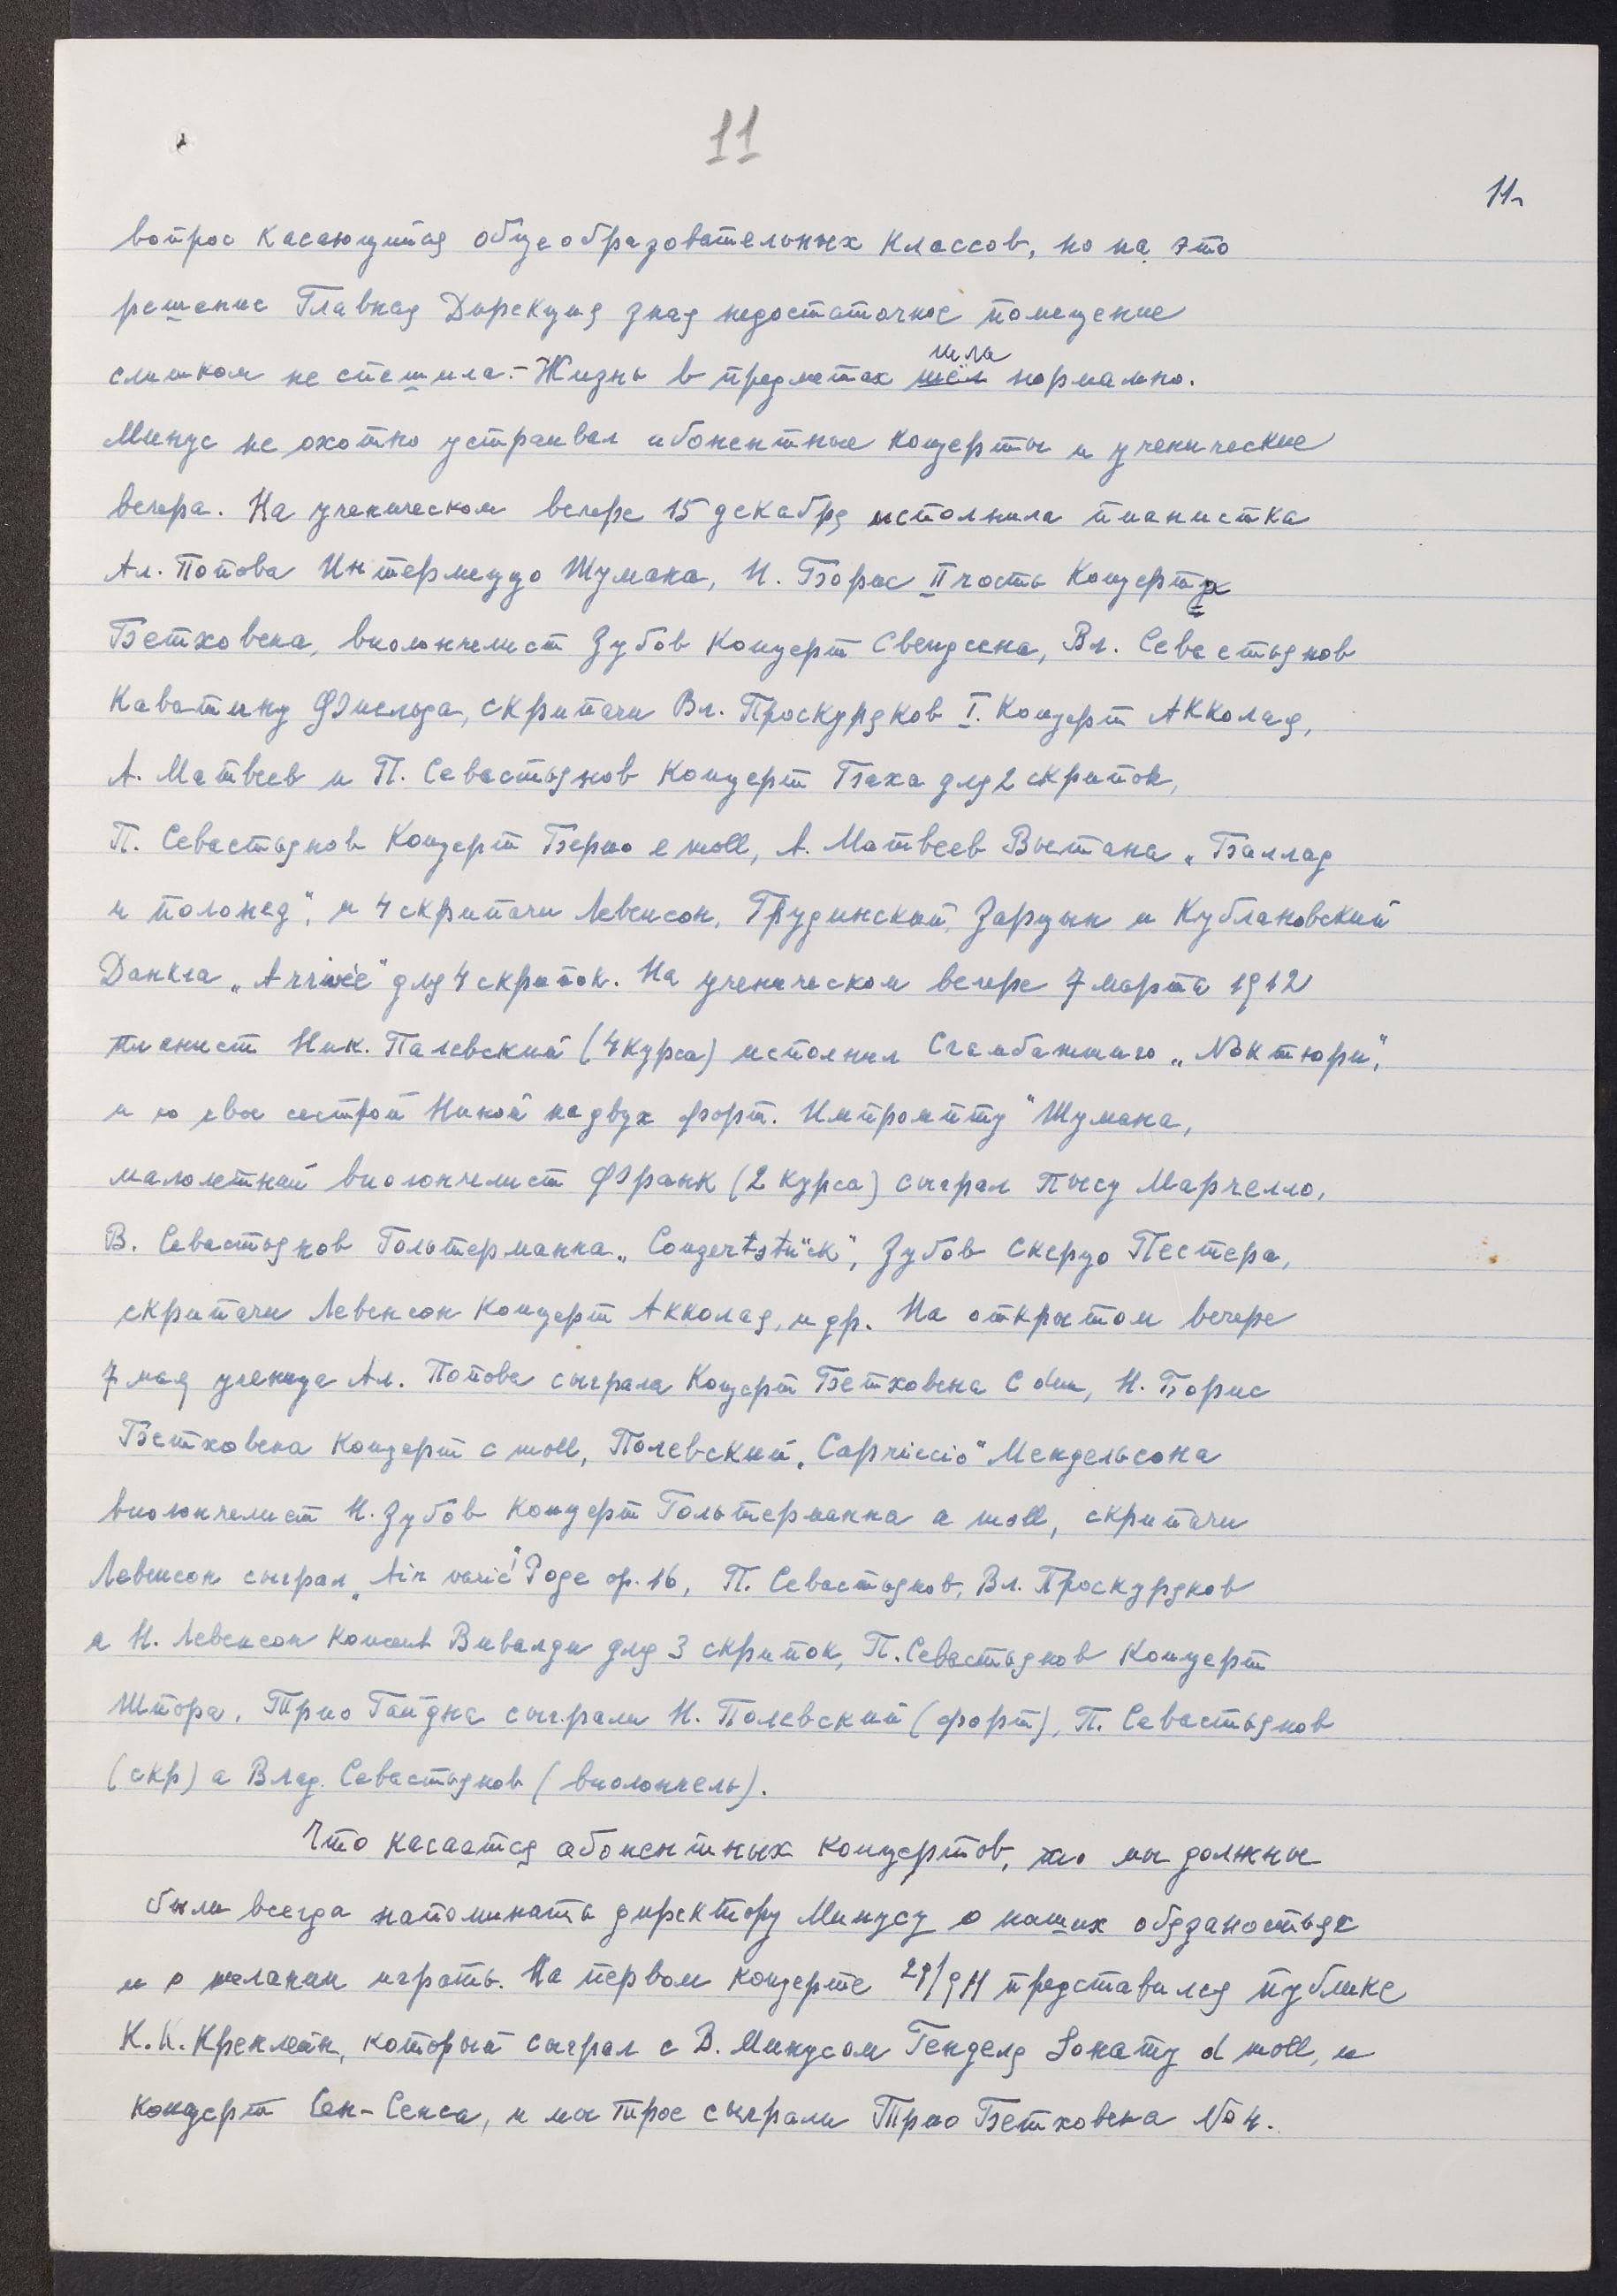 11
11
вопрос касающийся общеобразовательных классов, но на это
решение Главная Дирекция зная недостаточное помещение
слишком не спешила. – Жизнь в предметах шёл шла нормально.
Минус не охотно устраивал абонентные концерты и ученические
вечера. На ученическом вечере 15 декабря исполнила пианистка
Ал. Попова Интермеццо Шумана, Н. Борис II часть Концерта
Бетховена, виолончелист Зубов Концерт Свендсена, Вл. Севастьянов
Каватину Фиельда, скрипачи Вл. Проскуряков I. Концерт Акколая,
А. Матвеев и П. Севастьянов Концерт Баха для 2 скрипок,
П. Севастьянов Концерт Берио e moll, А. Матвеев Вьетана „Баллад
и полонез", и 4 скрипачи Левенсон, Грудинский, Зарцын и Кублановский
Данкла „Arrivée" для 4 скрипок. На ученическом вечере 7 марта 1912
пианист Ник. Палевский (4 курса) исполнил Сгамбатиго „Ноктюрн",
и со своей сестрой Ниной на двух форт. Импромпту" Шумана,
малолетний виолончелист Франк (2 курса) сыграл пьесу Марчелло,
В. Севастьянов Гольтерманна „Conzertstück", Зубов Скерцо Пестера,
скрипачи Левенсон Концерт Акколая, и др. На открытом вечере
7 мая ученица Ал. Попова сыграла Концерт Бетховена C dur, Н. Борис
Бетховена Концерт c moll, Полевский „Capriccio" Мендельсона
виолончелист Н. Зубов Концерт Гольтерманна a moll, скрипачи
Левенсон сыграл „Air varié" Роде op. 16, П. Севастьянов, Вл. Проскуряков
а Н. Левенсон Концерт Вивалди для 3 скрипок, П. Севастьянов Концерт
Шпора. Трио Гайдна сыграли Н. Полевский (форт), П. Севастьянов
(скр) а Влад. Севастьянов (виолончель).
Что касается абонентных концертов, то мы должны
были всегда напоминать директору Минусу о наших обязаностьях
и о желании играть. На первом концерте 29/9 11 представился публике
К. К. Креклеин, который сыграл с В. Минусом Генделя Sонату d moll, и
концерт Сен-Сенса, и мы трое сыграли Трио Бетховена № 4.